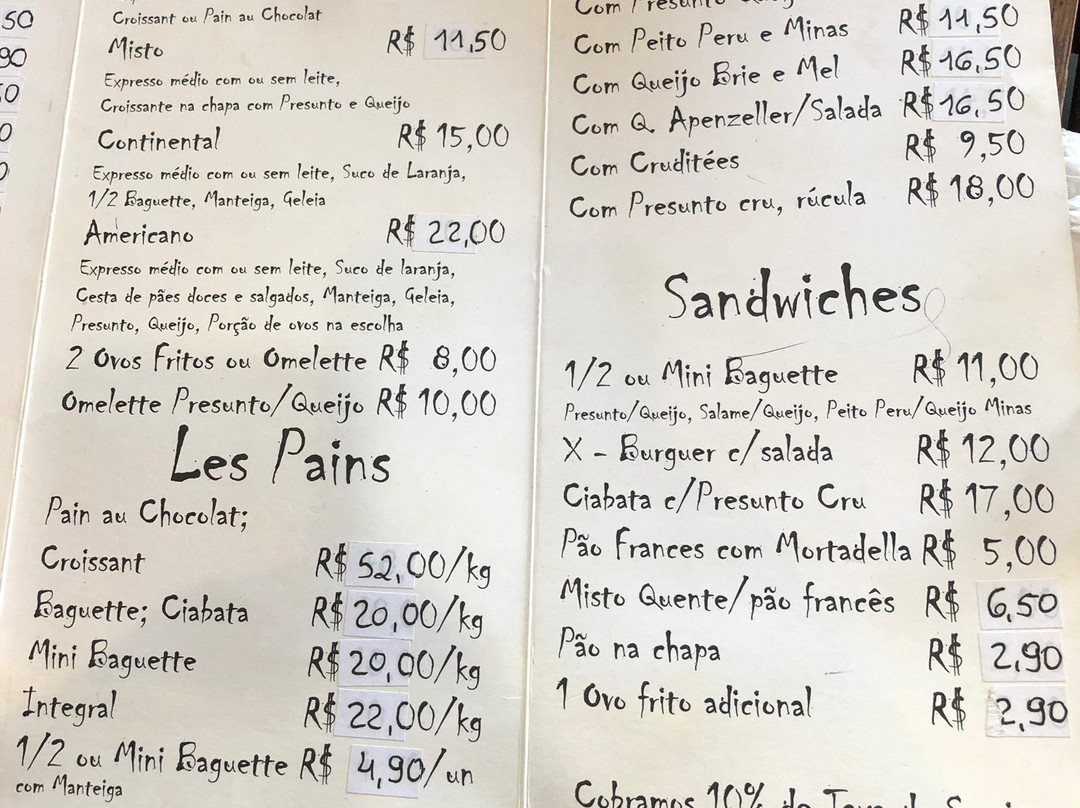 50
90
50
0
Croissant ou Pain au Chocolat
Misto R$ 11,50
Expresso médio com ou sem leite,
Croissante na chapa com Presunto e Queijo
Continental R$ 15,00
Expresso médio com ou sem leite, Suco de Laranja,
1/2 Baguette, Manteiga, Geleia
Americano R$ 22,00
Expresso médio com ou sem leite, Suco de laranja,
Cesta de pães doces e salgados, Manteiga, Geleia,
Presunto, Queijo, Porção de ovos na escolha
2 Ovos Fritos ou Omelette R$ 8,00
Omelette Presunto/Queijo R$ 10,00
Les Pains
Pain au Chocolat;
Croissant R$ 52,00/kg
Baguette; Ciabata R$ 20,00/kg
Mini Baguette R$ 20,00/kg
Integral R$ 22,00/kg
1/2 ou Mini Baguette R$ 4,90/un
com Manteiga
Com Presunto
Com Peito Peru e Minas R$ 11,50
Com Queijo Brie e Mel R$ 16,50
Com Q. Apenzeller/Salada R$ 16,50
Com Cruditées R$ 9,50
Com Presunto cru, rúcula R$ 18,00
Sandwiches
1/2 ou Mini Baguette R$ 11,00
Presunto/Queijo, Salame/Queijo, Peito Peru/Queijo Minas
X - Burguer c/salada R$ 12,00
Ciabata c/Presunto Cru R$ 17,00
Pão Frances com Mortadella R$ 5,00
Misto Quente/pão francês R$ 6,50
Pão na chapa R$ 2,90
1 Ovo frito adicional R$ 2,90
Cobramos 10% de Taxa de